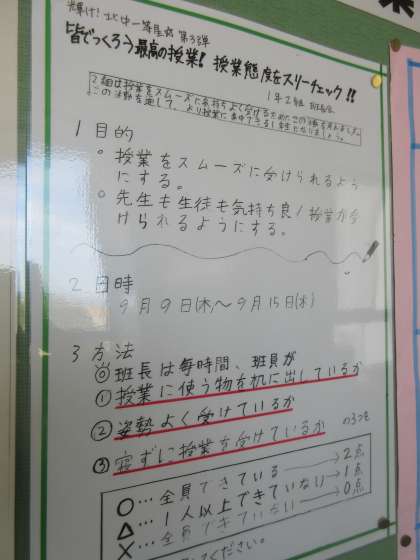 輝け!北中一等星 第3弾
皆でつくろう最高の授業! 授業態度をスリーチェック!!
1年2組 班長会
1 目的
。授業をスムーズに受けられるよう
にする。
。先生も生徒も気持ち良く授業が受
けられるようにする。
2 日時
9月9日(木)〜9月15日(水)
3 方法
◎班長は毎時間、班員が
①授業に使う物を机に出しているか
②姿勢よく受けているか
③寝ずに授業を受けているか の3つを
○…全員できている→2点
△…1人以上できていない→1点
×…全員できていない→0点
ください。